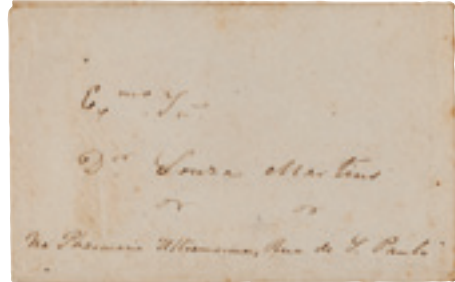 Ex.mo Snr
Dor Souza Martins
Na Pharmacia Ultramarina, Rua de S. Paulo